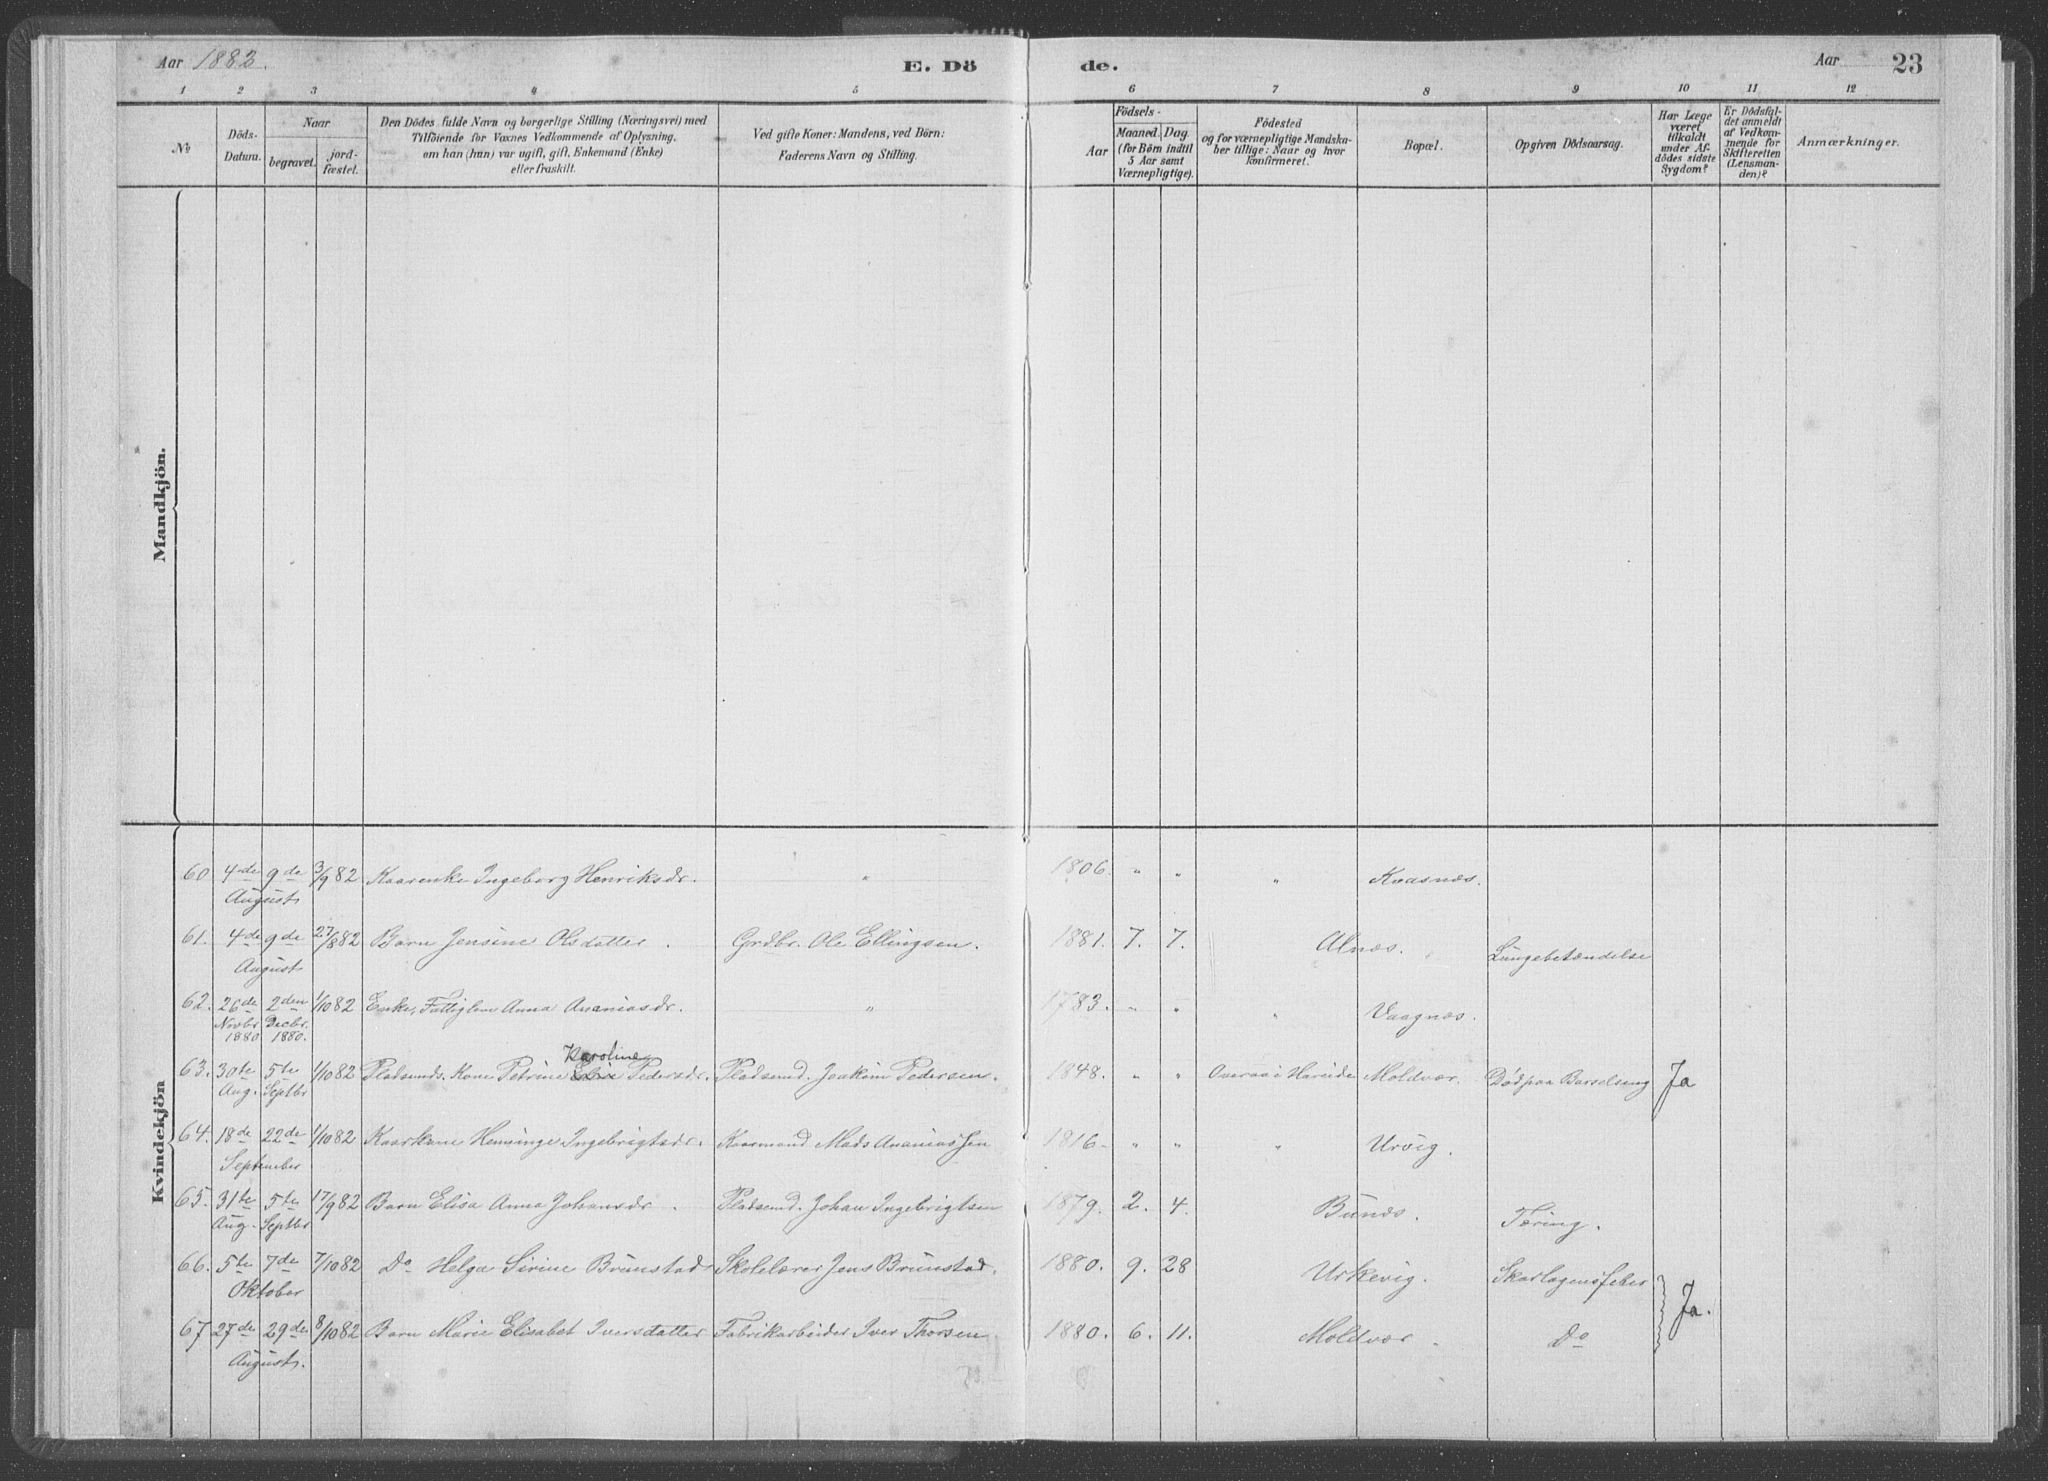 Aar 1882. E. Dö de. Aar 23
1 2 3 4 5 6 7 8 9 10 11 12
№
Döds-Datum.
Naar
begravet.
jord-fæstet.
Den Dödes fulde Navn og borgerlige Stilling (Næringsvei) med
Tilföiende for Voxnes Vedkommende af Oplysning,
om han (hun) var ugift, gift, Enkemand (Enke)
eller fraskilt.
Ved gifte Koner: Mandens, ved Börn:
Faderens Navn og Stilling.
Födsels-
Aar
Maaned. Dag
(for Børn indtil
5 Aar samt
Værnepligtige).
Födested
og for værnepligtige Mandska-
ber tillige: Naar og hvor
konfirmeret.
Bopæl.
Opgiven Dödsaarsag.
Har Læge
været
tilkaldt
under Af-
dödes sidste
Sygdom?
Er Dödsfal-
det anmeldt
af Vedkom-
mende for
Skifteretten
(Lensman-
den)?
Anmærkninger.
Mandkjön.
Kvindekjön
60 4de 9de 3/9 82 Kaarenke Ingeborg Henriksdr. " 1806. " " " Kvasnæs.
August
61. 4de 9de 27/8 82 Barn Jensine Olsdatter. Grdbr. Ole Ellingsen. 1881. 7. 7. Alnæs. Lungebetændelse
August
62. 26de 2den 1/10 82 Enke, Fattiglem Anna Ananiasdr. " 1783. " " " Vaagnæs.
Novbr. Decbr.
1880 1880.
Karoline
63. 30te 5te 1/10 82 Pladsmds. Kone Petrine Pedersdr. Pladsmd. Joakim Pedersen. 1848. " " Overaa i Hareide Moldvær. Död paa Barselseng Ja
Aug. Septbr
64. 18de 22de 1/10 82 Kaarkone Hensinge Ingebrigtsdr. Kaarmand Mads Ananiassen 1816 " " " Urvig.
September
65. 31te 5te 17/9 82 Barn Elisa Anna Johansdr. Pladsmd. Johan Ingebrigtsen 1879. 2. 4. Bunæs. Tæring.
Aug. Septbr
66. 5te 7de 7/10 82 Do Helga Sirine Brunstad Skolelærer Jens Brunstad. 1880. 9. 28 Urkevig. Skarlagensfeber
Oktober
Ja.
67 27de 29de 8/10 82 Barn Marie Elisabet Iversdatter Fabrikarbeider Iver Thorsen. 1880. 6. 11. Moldvær. Do
August.